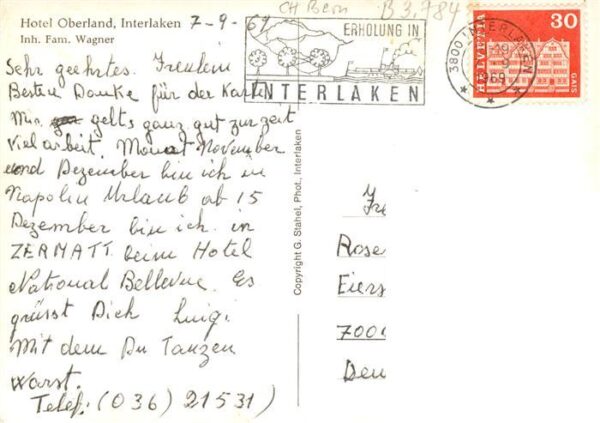 Hotel Oberland, Interlaken
Inh. Fam. Wagner
7-9-69
CH Bern
B3,784
ERHOLUNG IN
INTERLAKEN
3800 INTERLAKEN
1969
HELVETIA
30
GAIS
Sehr geehrtes. Freulein
Besten Danke für der Karte
Mir gelts ganz gut zur zeit
viel arbeit. Monat November
und Dezember bin ich in
Napolin Urlaub ab 15
Dezember bin ich in
ZERMATT beim Hotel
National Bellevue. Es
grüsst Dich Luigi
Mit dem Du Tanzen
warst.
Telef: (036) 21531)
Copyright G. Stahel, Phot., Interlaken
Rose
Eiers
700